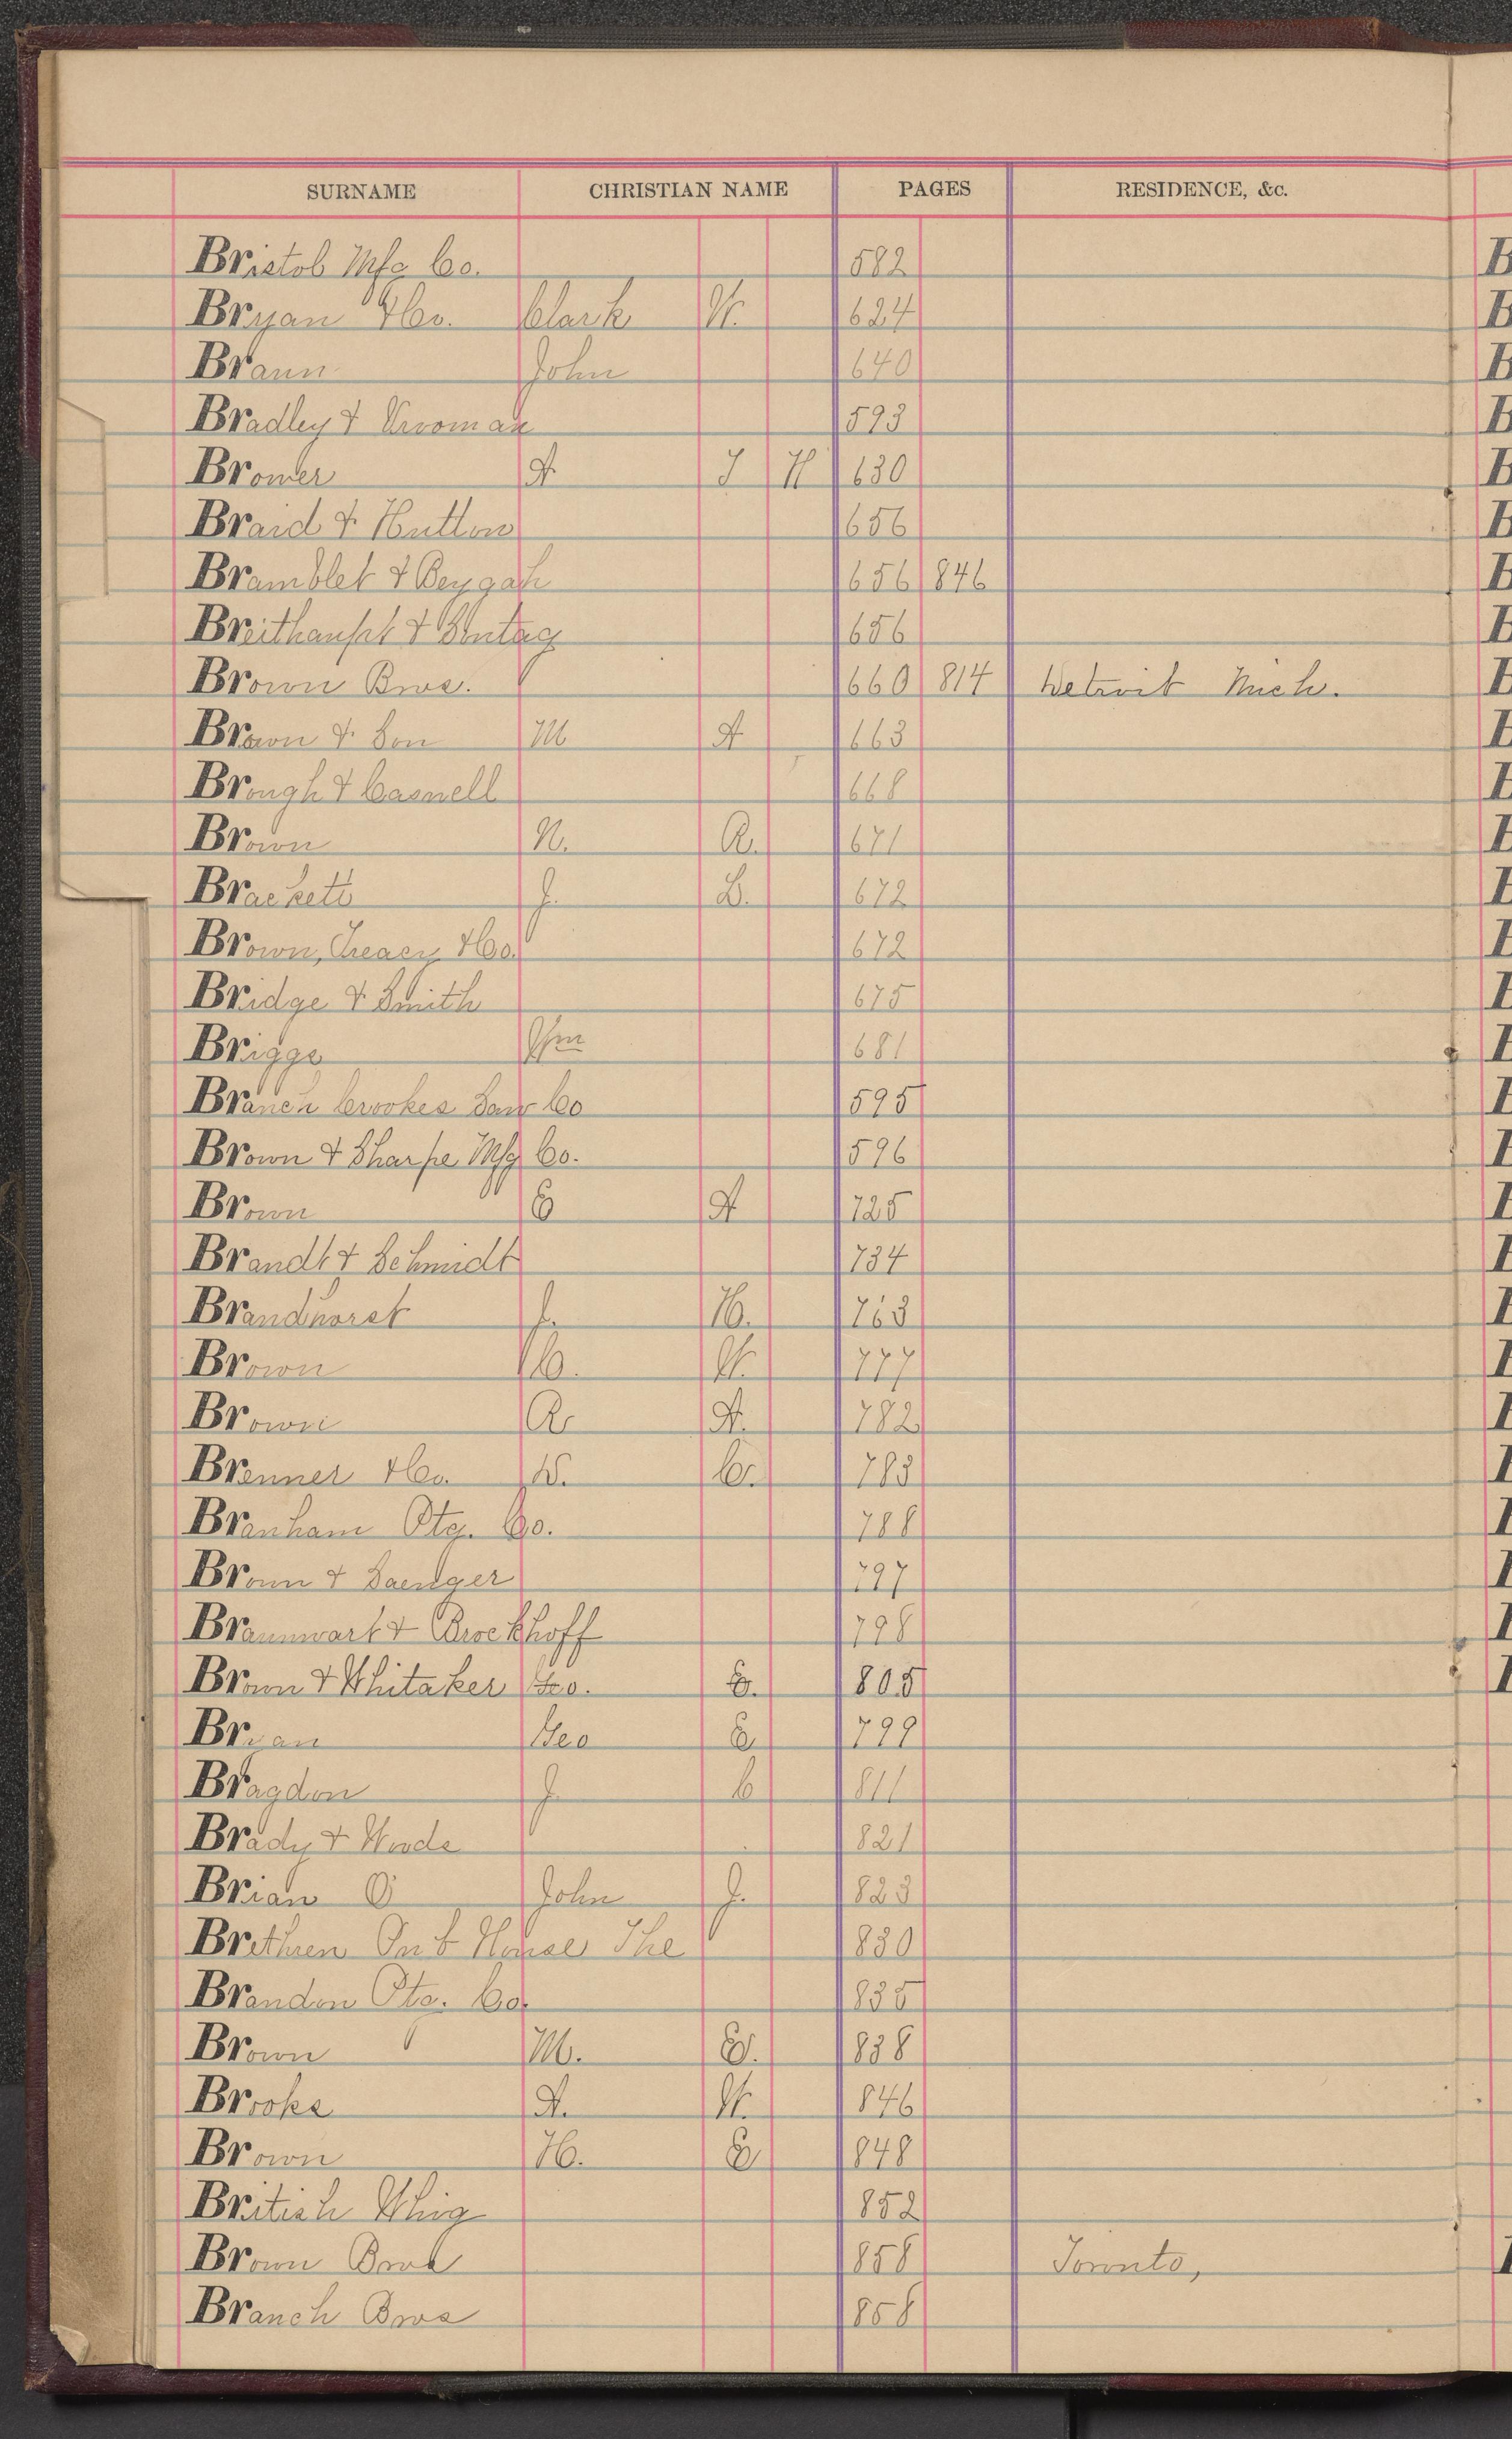 SURNAME CHRISTIAN NAME PAGES RESIDENCE, &c.
Bristol Mfg Co. 582
Bryan & Co. Clark W. 624
Braun John 640
Bradley & Vrooman 593
Bromer A J H 630
Braid & Hutton 656
Bramblet & Beygah 656 846
Breithaupt & Sontag 656
Brown Bros. 660 814 Detroit Mich.
Brown & Son M A 663
Brough & Caswell 668
Brown N. R. 671
Brackett J. L. 672
Brown, Treacy & Co. 672
Bridge & Smith 675
Briggs Wm 681
Branch Crookes Saw Co 595
Brown & Sharpe Mfg Co. 596
Brown E A 725
Brandt & Schmidt 734
Brandhorst J. H. 763
Brown C. W. 777
Brown R A. 782
Brenner & Co. W. C. 783
Branham Ptg. Co. 788
Brown & Saenger 797
Braunwart & Brockhoff 798
Brown & Whitaker Geo. E. 805
Bryan Geo E 799
Bragdon J. C 811
Brady & Woods 821
Brian O' John J. 823
Brethren Pub House The 830
Brandon Ptg. Co. 835
Brown M. E. 838
Brooks A. W. 846
Brown H. E 848
British Whig 852
Brown Bros 858 Toronto,
Branch Bros 858